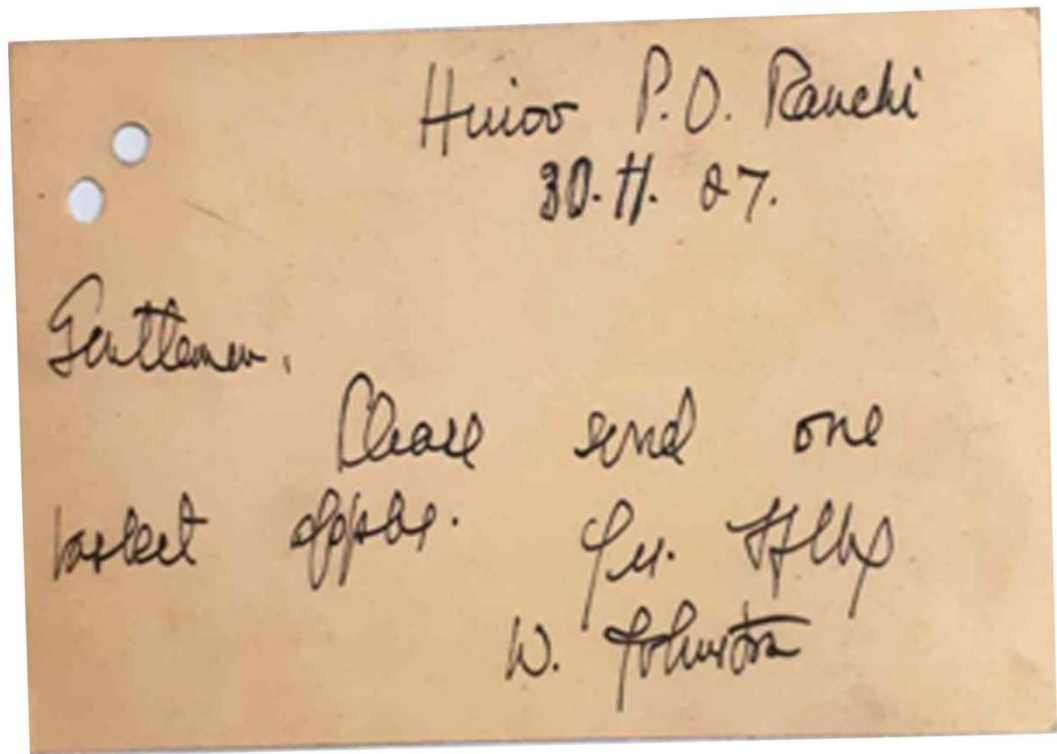 Hinoo P.O. Ranchi
30.11.27.
Gentlemen,
Please send one
basket apples. Yrs. ffly
W. Johnston